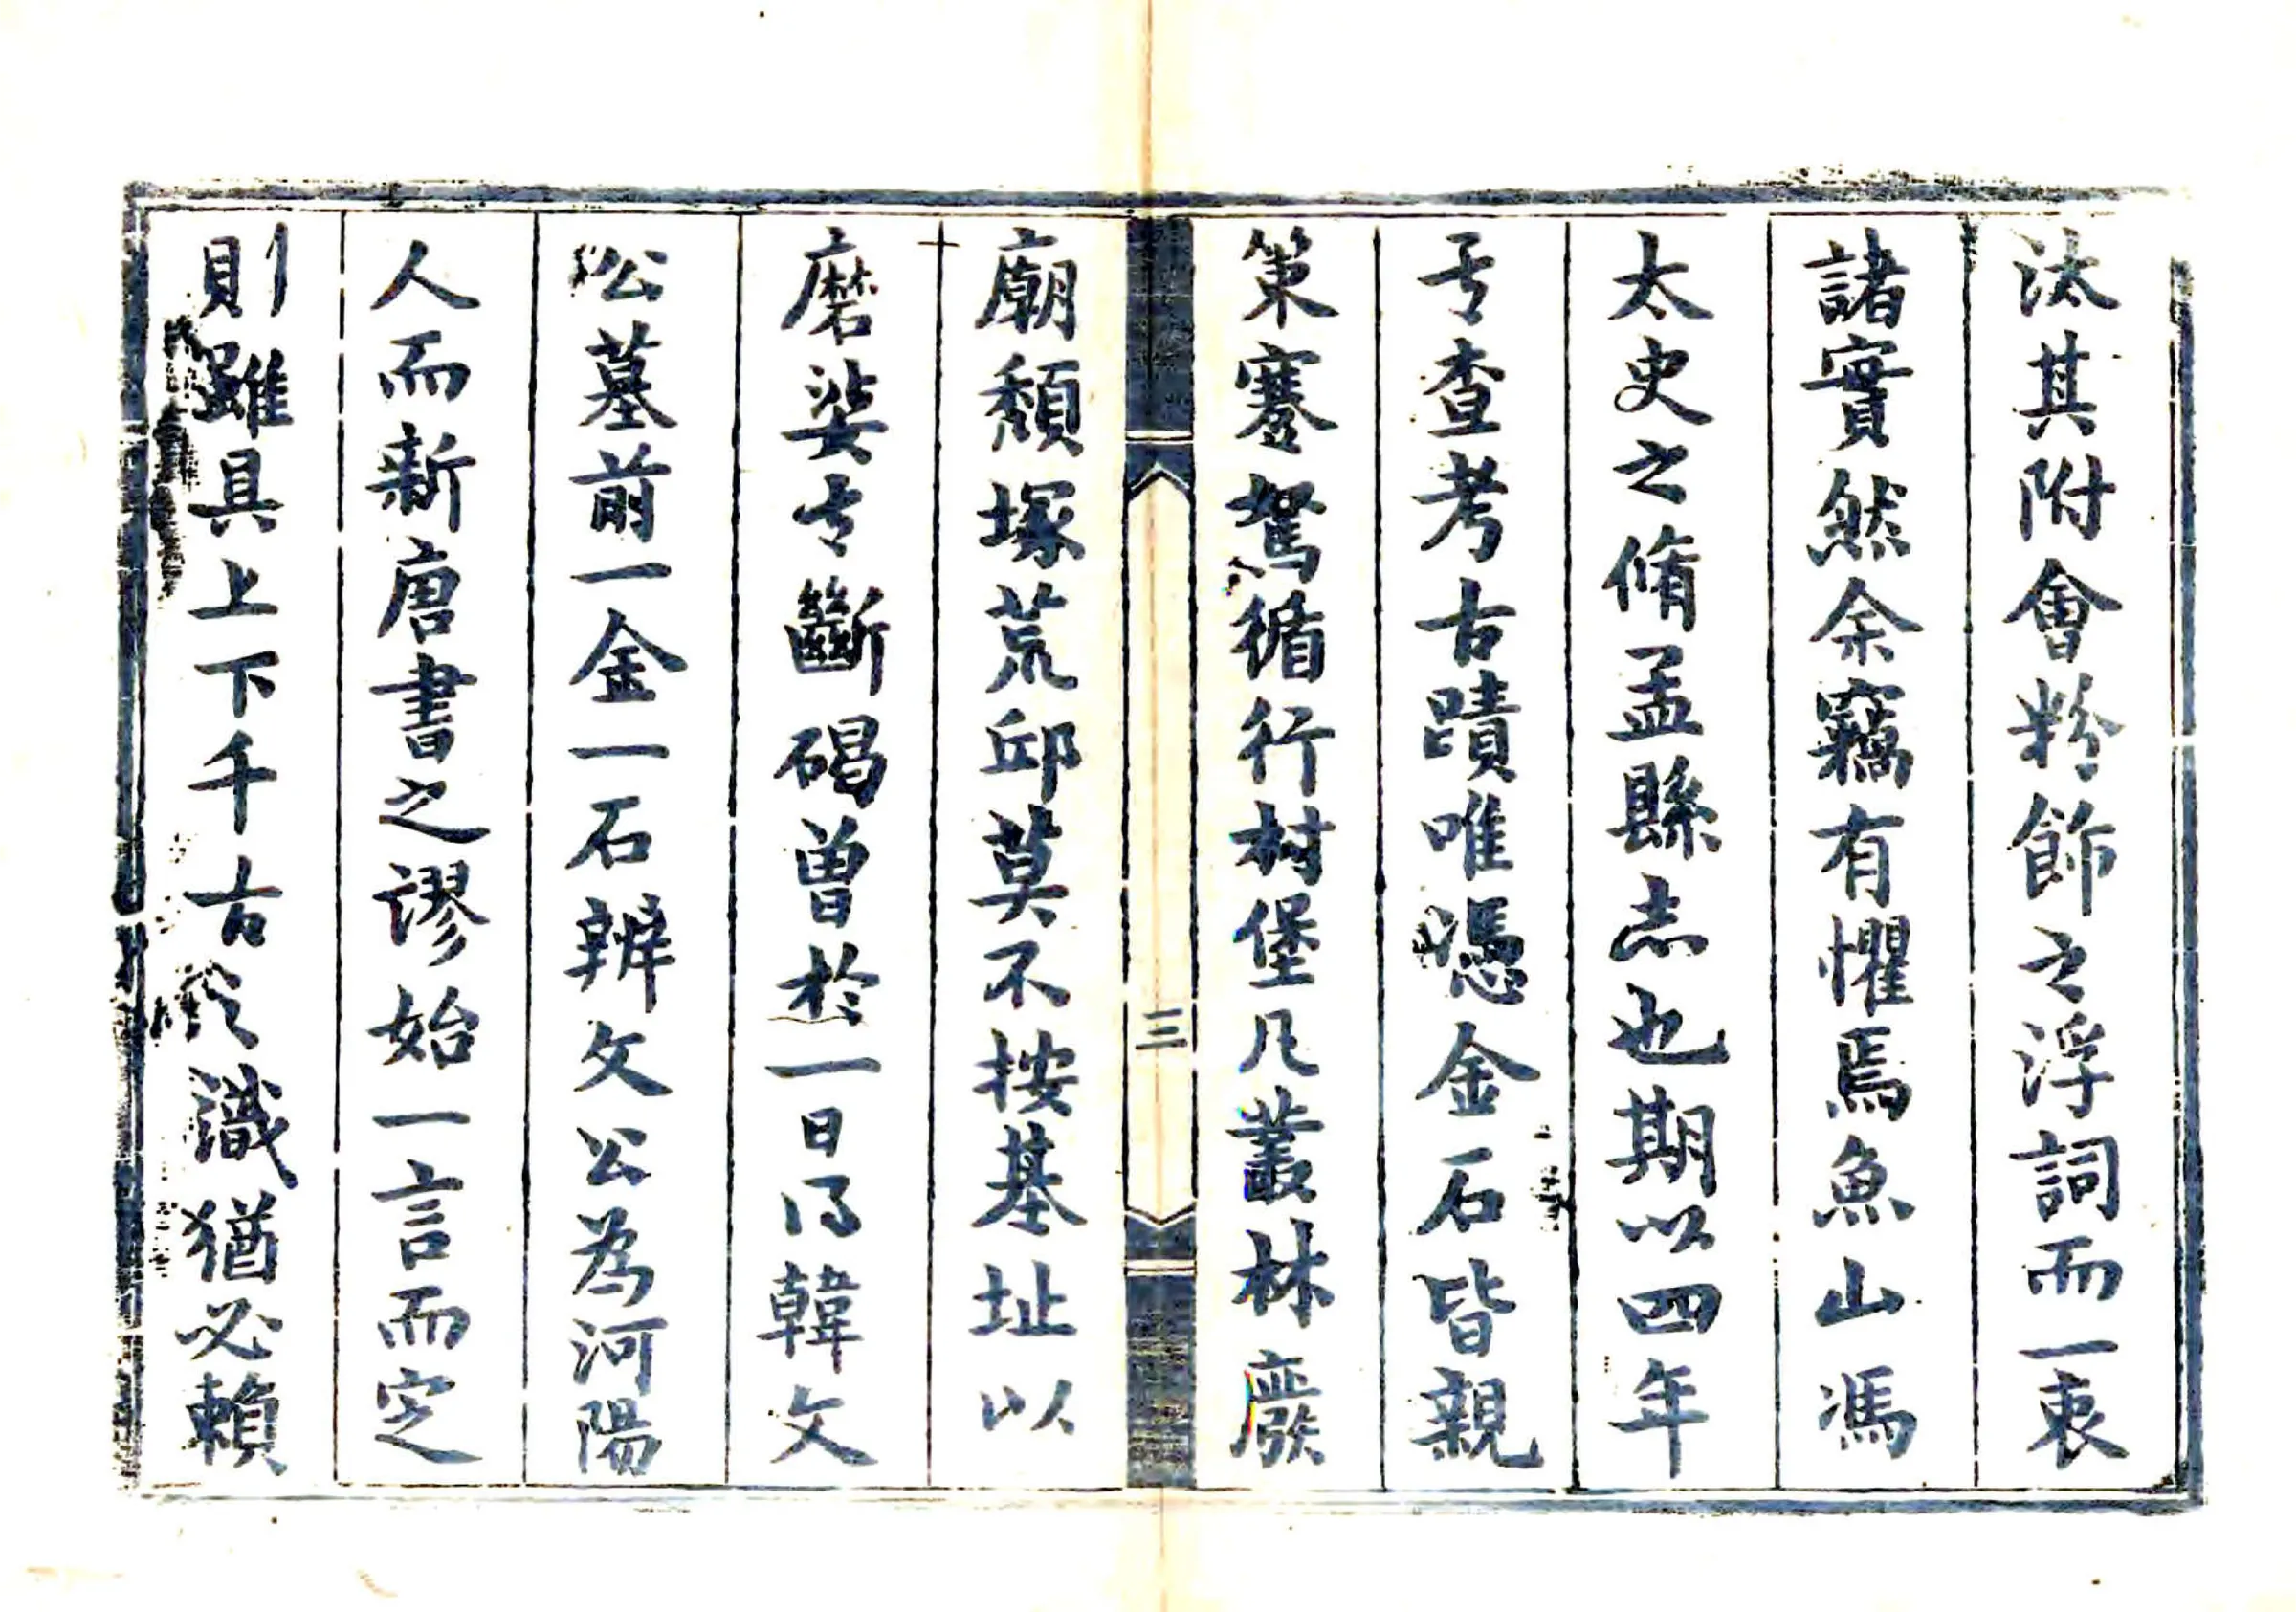 汰其附會粉飾之浮詞而一衷
諸實然余竊有懼焉魚山馮
太史之脩孟縣志也期以四年
于查考古蹟唯憑金石皆親
策蹇驚循行村堡凡叢林廢
廟頹塚荒邱莫不按基址以
磨娑專斷碣曾於一日得韓文
公墓前一金一石辨文公為河陽
人而新唐書之謬始一言而定
則雖具上下千古之識猶必賴
三